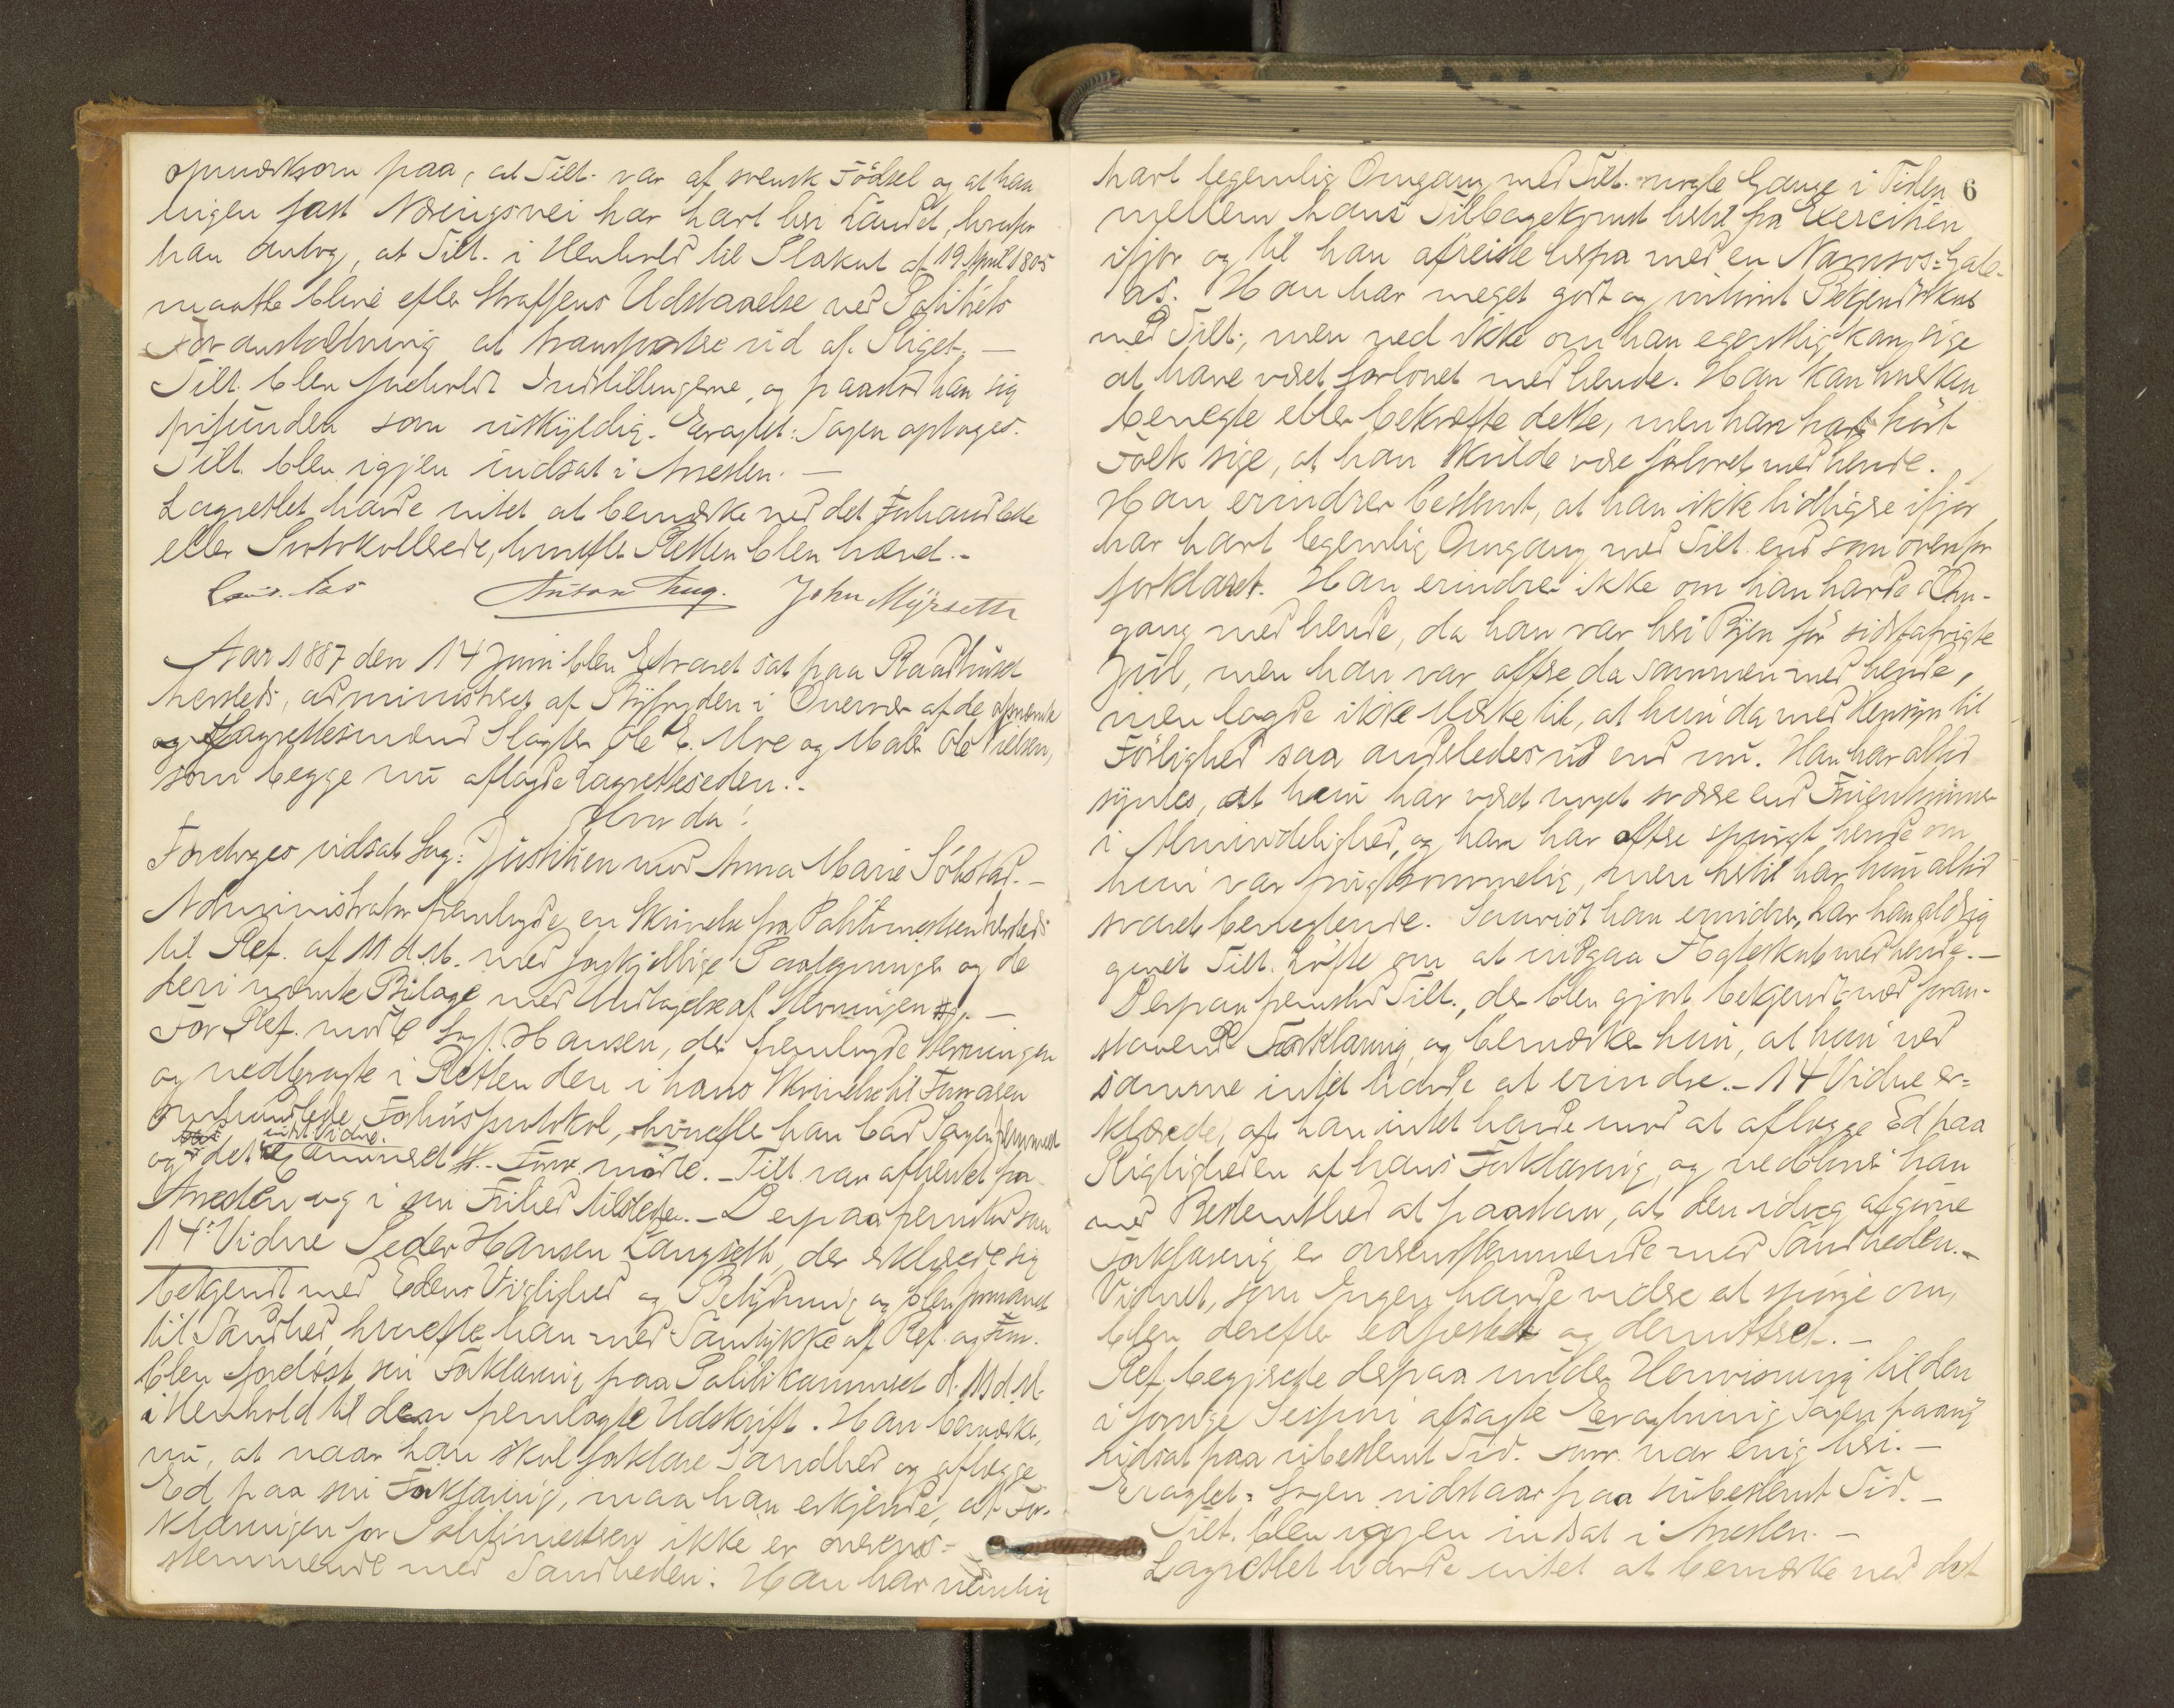 opmærksom paa, at Tilt. var af svensk Fødsel og at han
ingen fast Næringsvei har havt her i Landet, hvorfor
han antog, at Tilt. i Henhold til Plakat af 19 April 1805
maatte blive efter Straffens Udstaaelse ved Politiets
Foranstaltning at transportere ud af Riget. —
Tilt. blev foreholdt Indstillingerne, og paastod han sig
frifunden som uskyldig. Eragtet: Sagen optages.
Tilt. blev igjen indsat i Arresten. —
Lagrettet havde intet at bemærke ved det Forhandlede
eller Protokollerede, hvorefter Retten blev hævet. -
John Myrseth
Aar 1887 den 14 Juni blev Extraret sat paa Raadhuset
hersteds, administreret af Byfogden i Overvær af de opnævnte
Lagrettesmænd Slagter Ole E. Moe og Maler Ole Nielsen,
som begge nu aflagde Lagretteseden. -
Hvor da!
Foretoges udsat Sag: Justitien mod Anna Marie Sølstad. —
Administrator fremlagde en Skrivelse fra Politimesteren hersteds
til Ref. af 11 d. M. med forskjellige Paategninger og de
deri nævnte Bilage med Undtagelse af Stevningen. —
For Ref. mødte Sagf. Hansen, der fremlagde Stevningen
og nedbragte i Retten den i hans Skrivelse til Formanden
omhandlede Forhørsprotokol, hvorefter han bad Sagen fremmet
og det intet Vidne. — For. mødte. — Tilt. var afhentet fra
Arresten og i sin Frihed tilstede. — Derpaa fremstod som
14de Vidne Peder Hansen Langseth, der erklærede sig
bekjendt med Edens Vigtighed og Betydning og blev formanet
til Sandhed, hvorefter han med Samtykke af Ref. og For.
blev forelæst sin Forklaring paa Politikammeret d. 11 d. M.
i Henhold til den fremlagte Udskrift. Han bemærker
nu, at naar han skal forklare Sandhed og aflægge
Ed paa sin Forklaring, maa han erkjende, at For-
klaringen for Politimesteren ikke er overens-
stemmende med Sandheden. Han har nemlig
6
havt legemlig Omgang med Tilt. nogle Gange i Tiden
mellem hans Tilbagekomst hertil fra Exercitien
ifjor og til han afreiste herfra med en Namsos-Gale-
as. Han har meget godt og intimt Bekjendtskab
med Tilt., men ved ikke om han egentlig kan sige
at have været forlovet med hende. Han kan hverken
benegte eller bekræfte dette, men han har hørt
Folk sige, at han skulde være forlovet med hende.
Han erindrer bestemt, at han ikke tidligere ifjor
har havt legemlig Omgang med Tilt. end som ovenfor
forklaret. Han erindrer ikke om han havde Om-
gang med hende, da han var her i Byen før sidstafvigte
Jul, men han var oftere da sammen med hende,
men lagde ikke Mærke til, at hun da med Hensyn til
Førlighed saa anderledes ud end nu. Han har altid
syntes, at hun har været noget sværere end Fruentimmer
i Almindelighed, og han har oftere spurgt hende om
hun var frugtsommelig, men hertil har hun altid
svaret benegtende. Saavidt han erindrer, har han aldrig
givet Tilt. Løfte om at indgaa Ægteskab med hende. —
Derpaa fremstod Tilt., der blev gjort bekjendt med foran-
staaende Forklaring, og bemærker hun, at hun ved
samme intet havde at erindre. — 14 Vidne er-
klærede, at han intet havde mod at aflægge Ed paa
Rigtigheden af hans Forklaring, og vedblev han
med Bestemthed at paastaa, at den idag afgivne
Forklaring er overensstemmende med Sandheden. —
Vidnet, som Ingen havde videre at spørge om,
blev derefter edfæstet og demitteret. —
Ref. begjærede derpaa under Henvisning til den
i forrige Session afsagte Eragtning Sagen paany
udsat paa ubestemt Tid. Forr. var enig heri. —
Eragtet: Sagen udstaar paa ubestemt Tid. —
Tilt. blev igjen indsat i Arresten. —
Lagrettet havde intet at bemærke ved det